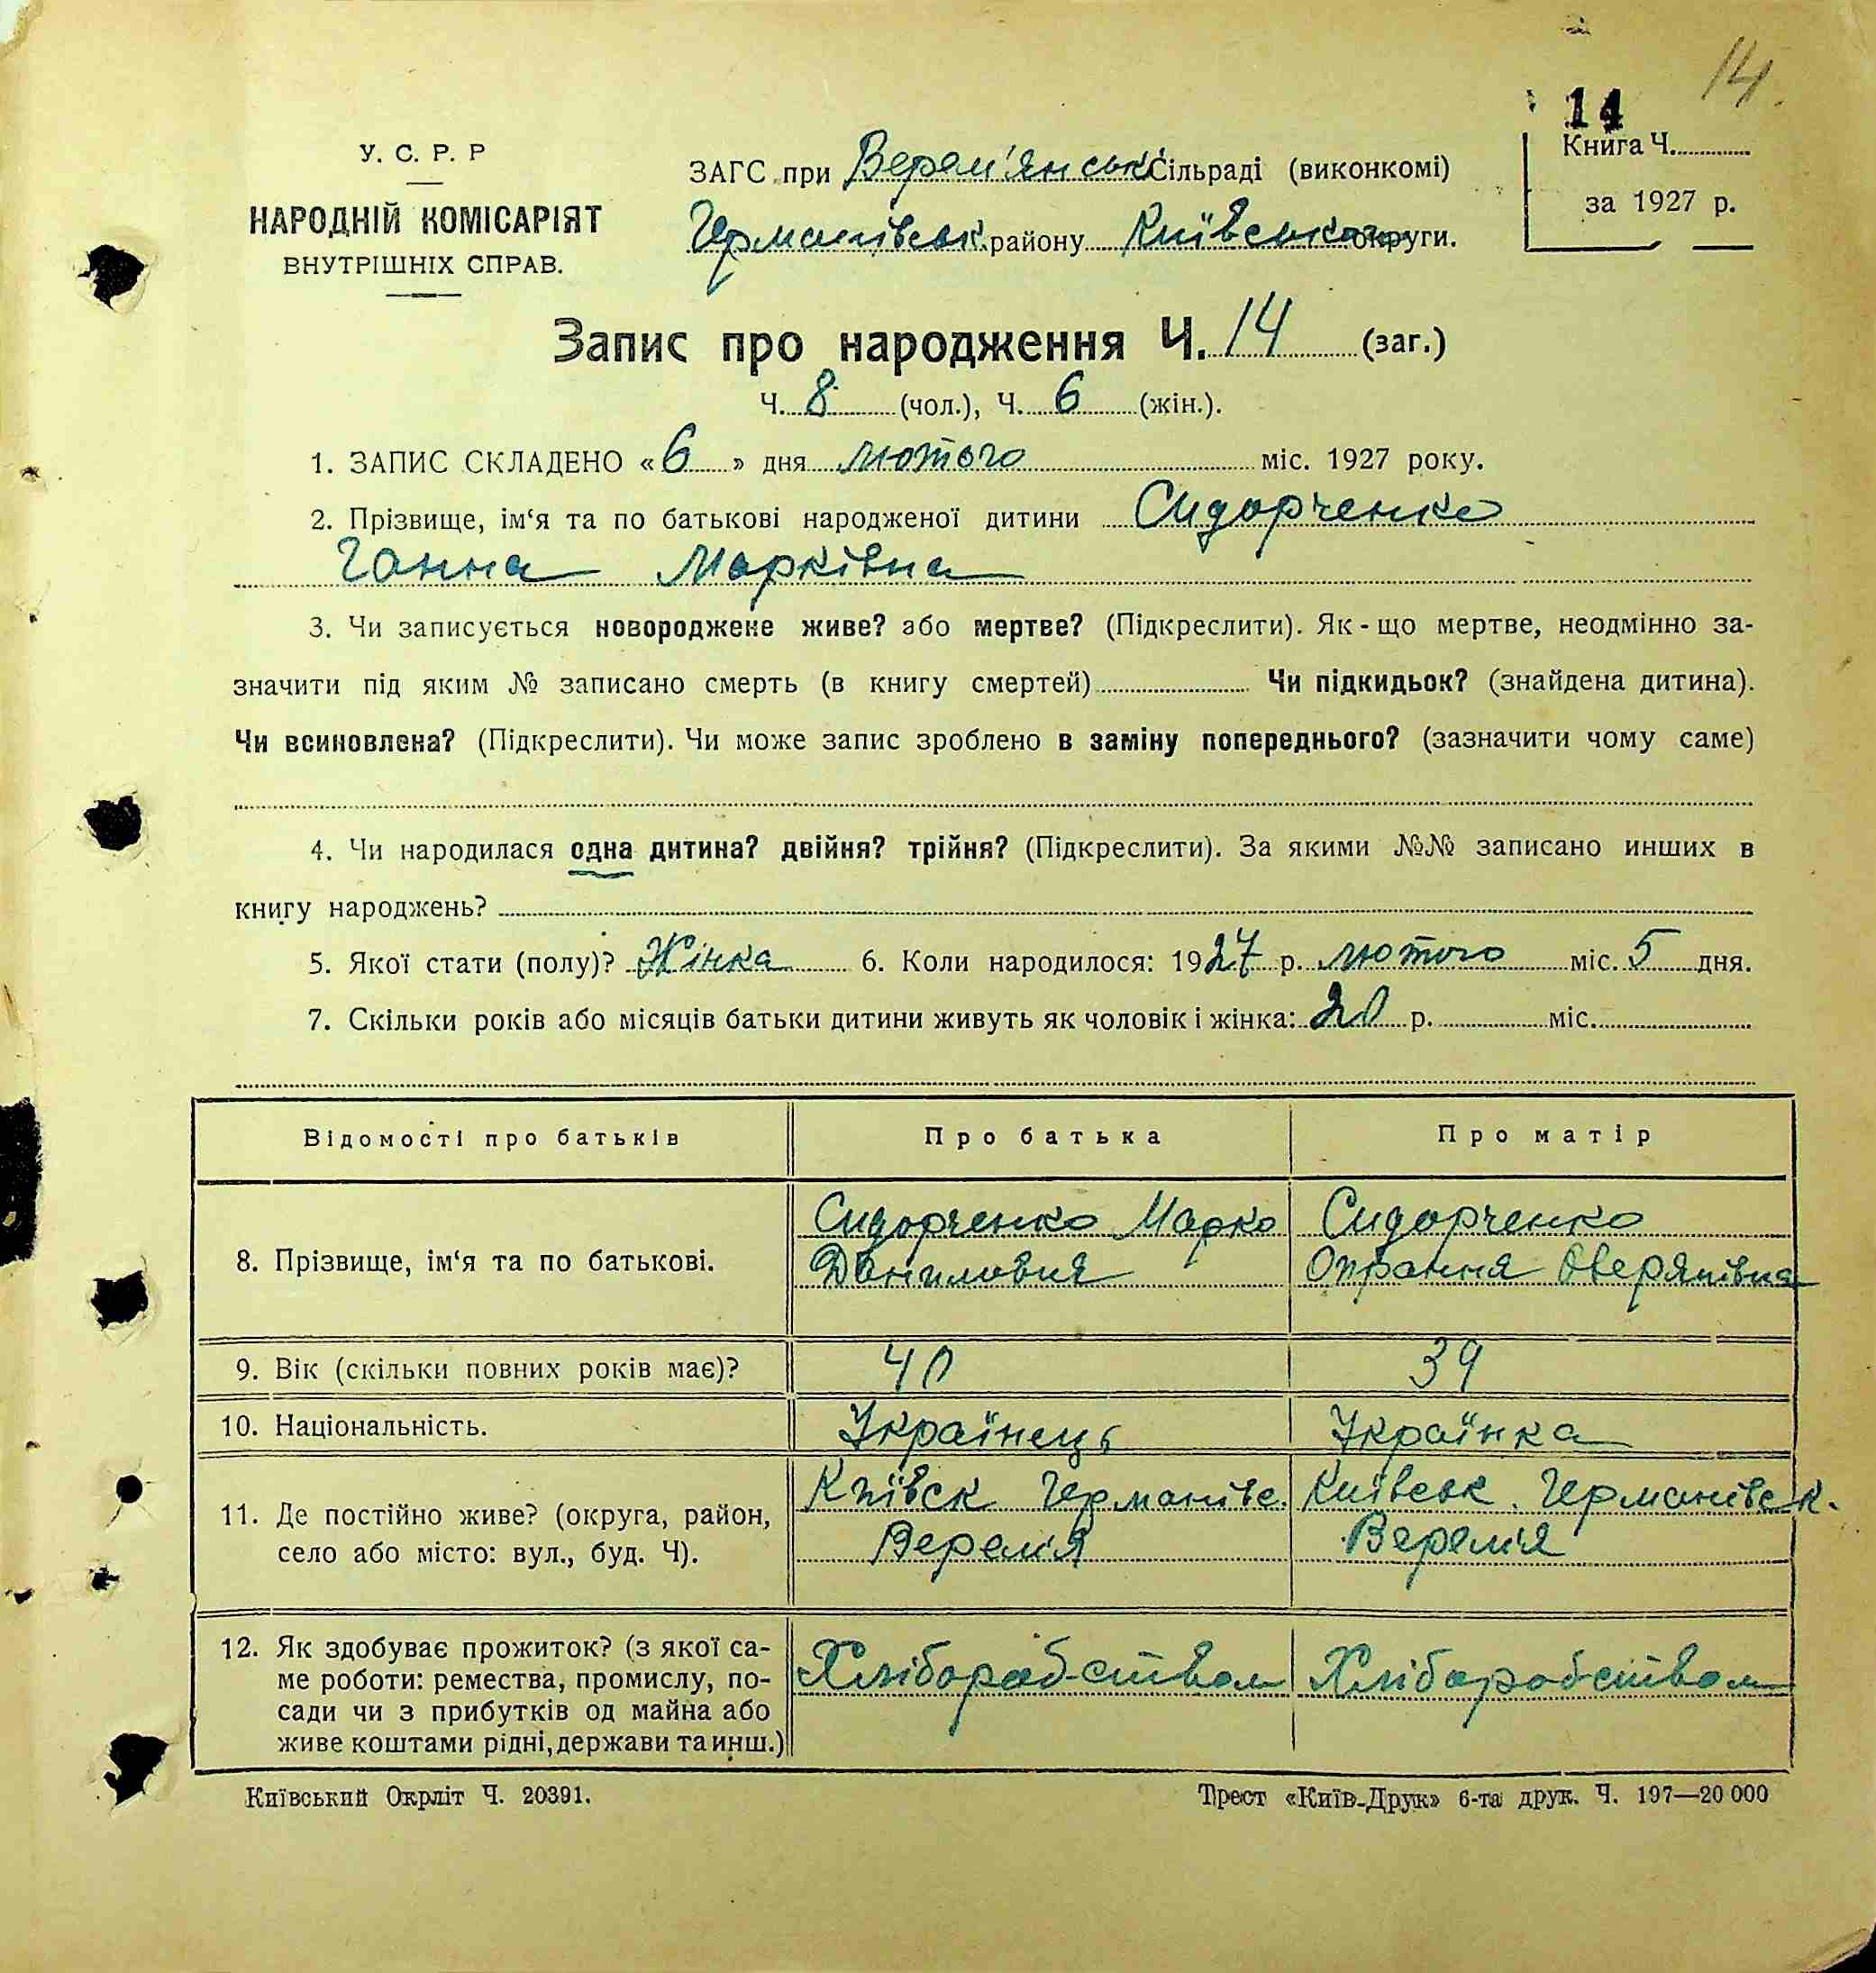 14.
14
У. С. Р. Р
НАРОДНІЙ КОМІСАРІЯТ
ВНУТРІШНІХ СПРАВ.
ЗАГС при Верем'янські Сільраді (виконкомі)
Германівськ. району Київська округи.
Книга Ч.
за 1927 р.
Запис про народження Ч. 14 (заг.)
Ч. 8 (чол.), Ч. 6 (жін.).
1. ЗАПИС СКЛАДЕНО «6» дня лютого міс. 1927 року.
2. Прізвище, ім'я та по батькові народженої дитини Сидорченко
Ганна Марківна
3. Чи записується новороджене живе? або мертве? (Підкреслити). Як-що мертве, неодмінно за-
значити під яким № записано смерть (в книгу смертей) Чи підкидьок? (знайдена дитина).
Чи всиновлена? (Підкреслити). Чи може запис зроблено в заміну попереднього? (зазначити чому саме)
4. Чи народилася одна дитина? двійня? трійня? (Підкреслити). За якими №№ записано инших в
книгу народжень?
5. Якої стати (полу)? Жінка 6. Коли народилося: 1927 р. лютого міс. 5 дня.
7. Скільки років або місяців батьки дитини живуть як чоловік і жінка: 20 р. міс.
Відомості про батьків Про батька Про матір
8. Прізвище, ім'я та по батькові.
Сидорченко Марко
Данилович
Сидорченко
Опрання Оверянівна
9. Вік (скільки повних років має)? 40 39
10. Національність. Українець Українка
11. Де постійно живе? (округа, район,
село або місто: вул., буд. Ч).
Київск Германівс.
Верем'я
Київськ. Германівськ.
Верем'я
12. Як здобуває прожиток? (з якої са-
ме роботи: ремества, промислу, по-
сади чи з прибутків од майна або
живе коштами рідні, держави та инш.)
Хліборобством
Хліборобством
Київський Окрліт Ч. 20391.
Трест «Київ-Друк» 6-та друк. Ч. 197—20 000